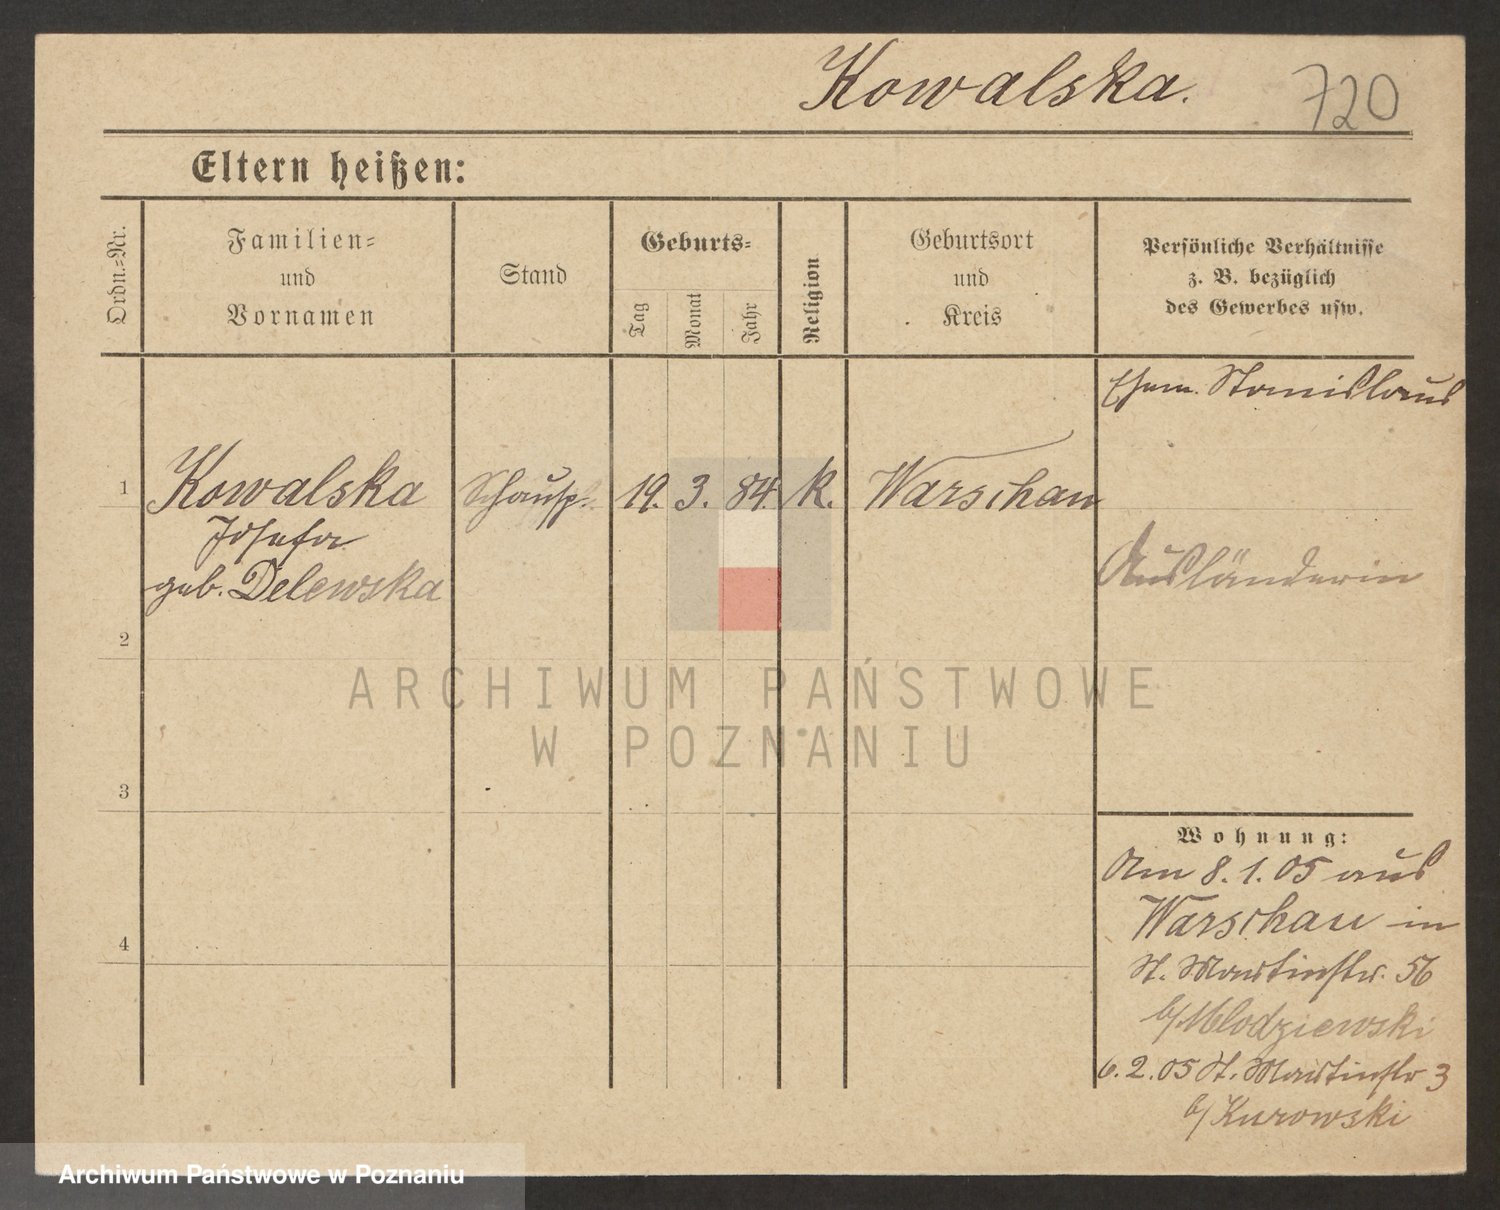 Kowalska.
720
Eltern heißen:
Ordn.-Nr.
Familien-
und
Vornamen
Stand
Geburts-
Tag
Monat
Jahr
Religion
Geburtsort
und
Kreis
Persönliche Verhältnisse
z. B. bezüglich
des Gewerbes usw.
Ehem. Stanislaus
1
Kowalska
Schausp.
19. 3. 84. K.
Warschau
Josefa
geb. Delewska
Ausländerin
2
ARCHIWUM PAŃSTWOWE
W POZNANIU
3
Wohnung:
Am 8. 1. 05 aus
Warschau in
St. Martinstr. 56
b/ Mlodziewski
4
6. 2. 05 St. Martinstr 3
b/ Kurowski
Archiwum Państwowe w Poznaniu